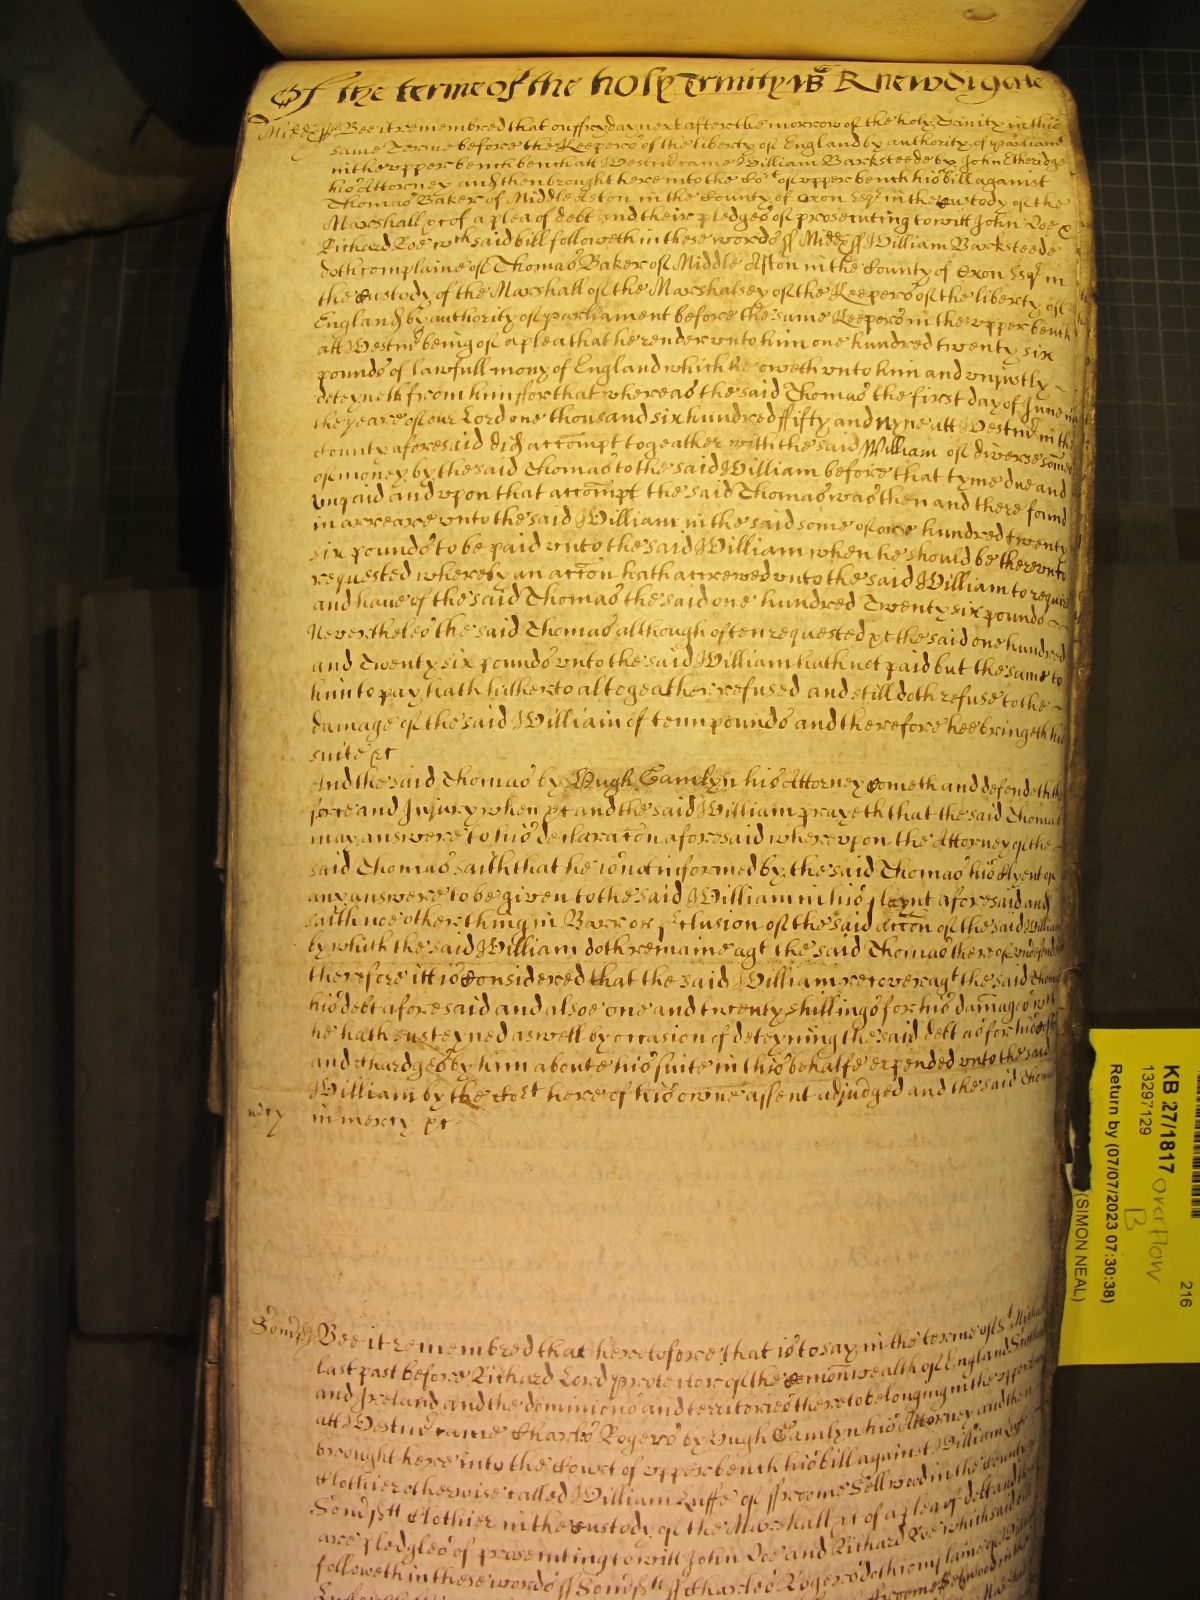 Of the terme of the holy Trinity 1659 R Newdigate
Midds ss Bee it remembred that on ffryday next after the morrow of the holy Trinity in this
same Terme before the Keepers of the liberty of England by authority of parliam
in the vpper bench bench att Westm came William Barksteede by John Etheridge
his Attorney and then brought here into the Cort of vpper bench his bill against
Thomas Baker of Middle Aston in the County of Oxon Esqr in the custody of the
Marshall &c of a plea of debt and their pledges of prosecuting to witt John Doe &
Richard Roe wch said bill followeth in these words ss Midds ss William Barksteede
doth complaine of Thomas Baker of Middle Aston in the County of Oxon Esqr in
the Custody of the Marshall of the Marshalsey of the Keepers of the liberty of
England by authority of parliament before the same Keepers in the vpper bench
att Westmr being of a plea that he render vnto him one hundred twenty six
pounds of lawfull mony of England which he oweth vnto him and vniustly
deteyneth from him ffor that whereas the said Thomas the first day of June in
the yeare of our Lord one thousand six hundred ffifty and nyne att Westmr in the
County aforesaid did accompt togeather with the said William of diverse somes
of money by the said Thomas to the said William before that tyme due and
vnpaid and vpon that accompt the said Thomas was then and there found
in arreare vnto the said William in the said some of one hundred twenty
six pounds to be paid vnto the said William when he should be therevnto
requested whereby an accon hath accrewed vnto the said William to require
and haue of the said Thomas the said one hundred Twenty six pounds
Neverthelės the said Thomas although often requested &c the said one hundred
and Twenty six pounds vnto the said William hath not paid but the same to
him to pay hath hitherto altogeather refused and still doth refuse to the
damage of the said William of tenn pounds and therefore hee bringeth his
suite &c
And the said Thomas by Hugh Gamlyn his Attorney cometh and defendeth the
force and Injury when &c and the said William prayeth that the said Thomas
may answere to his declaracon aforesaid wherevpon the Attorney of the
said Thomas saith that he is not informed by the said Thomas his Clyent of
any answere to be given to the said William in his playnt aforesaid and
saith noe other thing in Barr or pclusion of the said accon of the said William
by which the said William doth remaine agt the said Thomas thereof vndefended
therefore itt is Considered that the said William recover agt the said Thomas
his debt aforesaid and alsoe one and twenty shillings for his damages wch
he hath susteyned as well by occasion of deteyning the said debt as for his costs
and chardges by him aboute his suite in this behalfe expended vnto the said
William by the Cort here of his owne assent adjudged and the said Thomas
mcy in mercy &c
Somst ss Bee it remembred that heretofore that is to say in the terme of St Michael
last past before Richard Lord protector of the Comonwealth of England Scotland
and Ireland and the dominions and territories thereto belonging in the vpper bench
att Westmr came Charles Rogers by Hugh Gamlyn his Attorney and then
brought here into the Court of vpper bench his bill against William Luffe
Clothier otherwise called William Luffe of ffroome Sellwood in the County of
Somstt Clothier in the custody of the Marshall &c of a plea of debt and there
are pledges of prosecuting to witt John Doe and Richard Roe which said bill
followeth in these words ss Somstt ss Charles Rogers doth complaine of William
KB 27/1817
13297129
Return by (07/07/2023 07:30:38)
(SIMON NEAL)
overflow
B
216